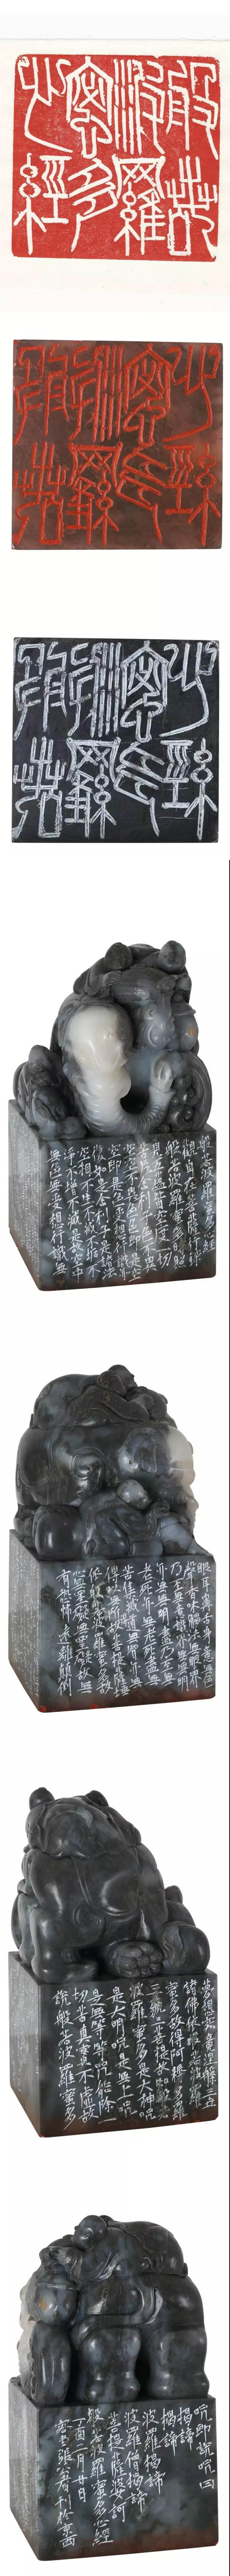 般若
波羅
蜜多
心經
般若波羅蜜多心經
觀自在菩薩行深
般若波羅蜜多時照
見五蘊皆空度一切
苦厄舍利子色不異
空空不異色色即是空
空即是色受想行識亦
復如是舍利子是諸法
空相不生不滅不垢不
淨不增不減是故空中
無色無受想行識無
眼耳鼻舌身意無色
聲香味觸法無眼界
乃至無意識界無無明
亦無無明盡乃至無
老死亦無老死盡無
苦集滅道無智亦無
得以無所得故菩提薩埵
依般若波羅蜜多故
心無罣礙無罣礙故無
有恐怖遠離顛倒
夢想究竟涅槃三世
諸佛依般若波羅
蜜多故得阿耨多羅
三藐三菩提故知般若
波羅蜜多是大神咒
是大明咒是無上咒
是無等等咒能除一
切苦真實不虛故
說般若波羅蜜多
咒即說咒曰
揭諦
揭諦
波羅揭諦
波羅僧揭諦
菩提薩婆訶
般若波羅蜜多心經
丁酉二月廿日
刊於京西